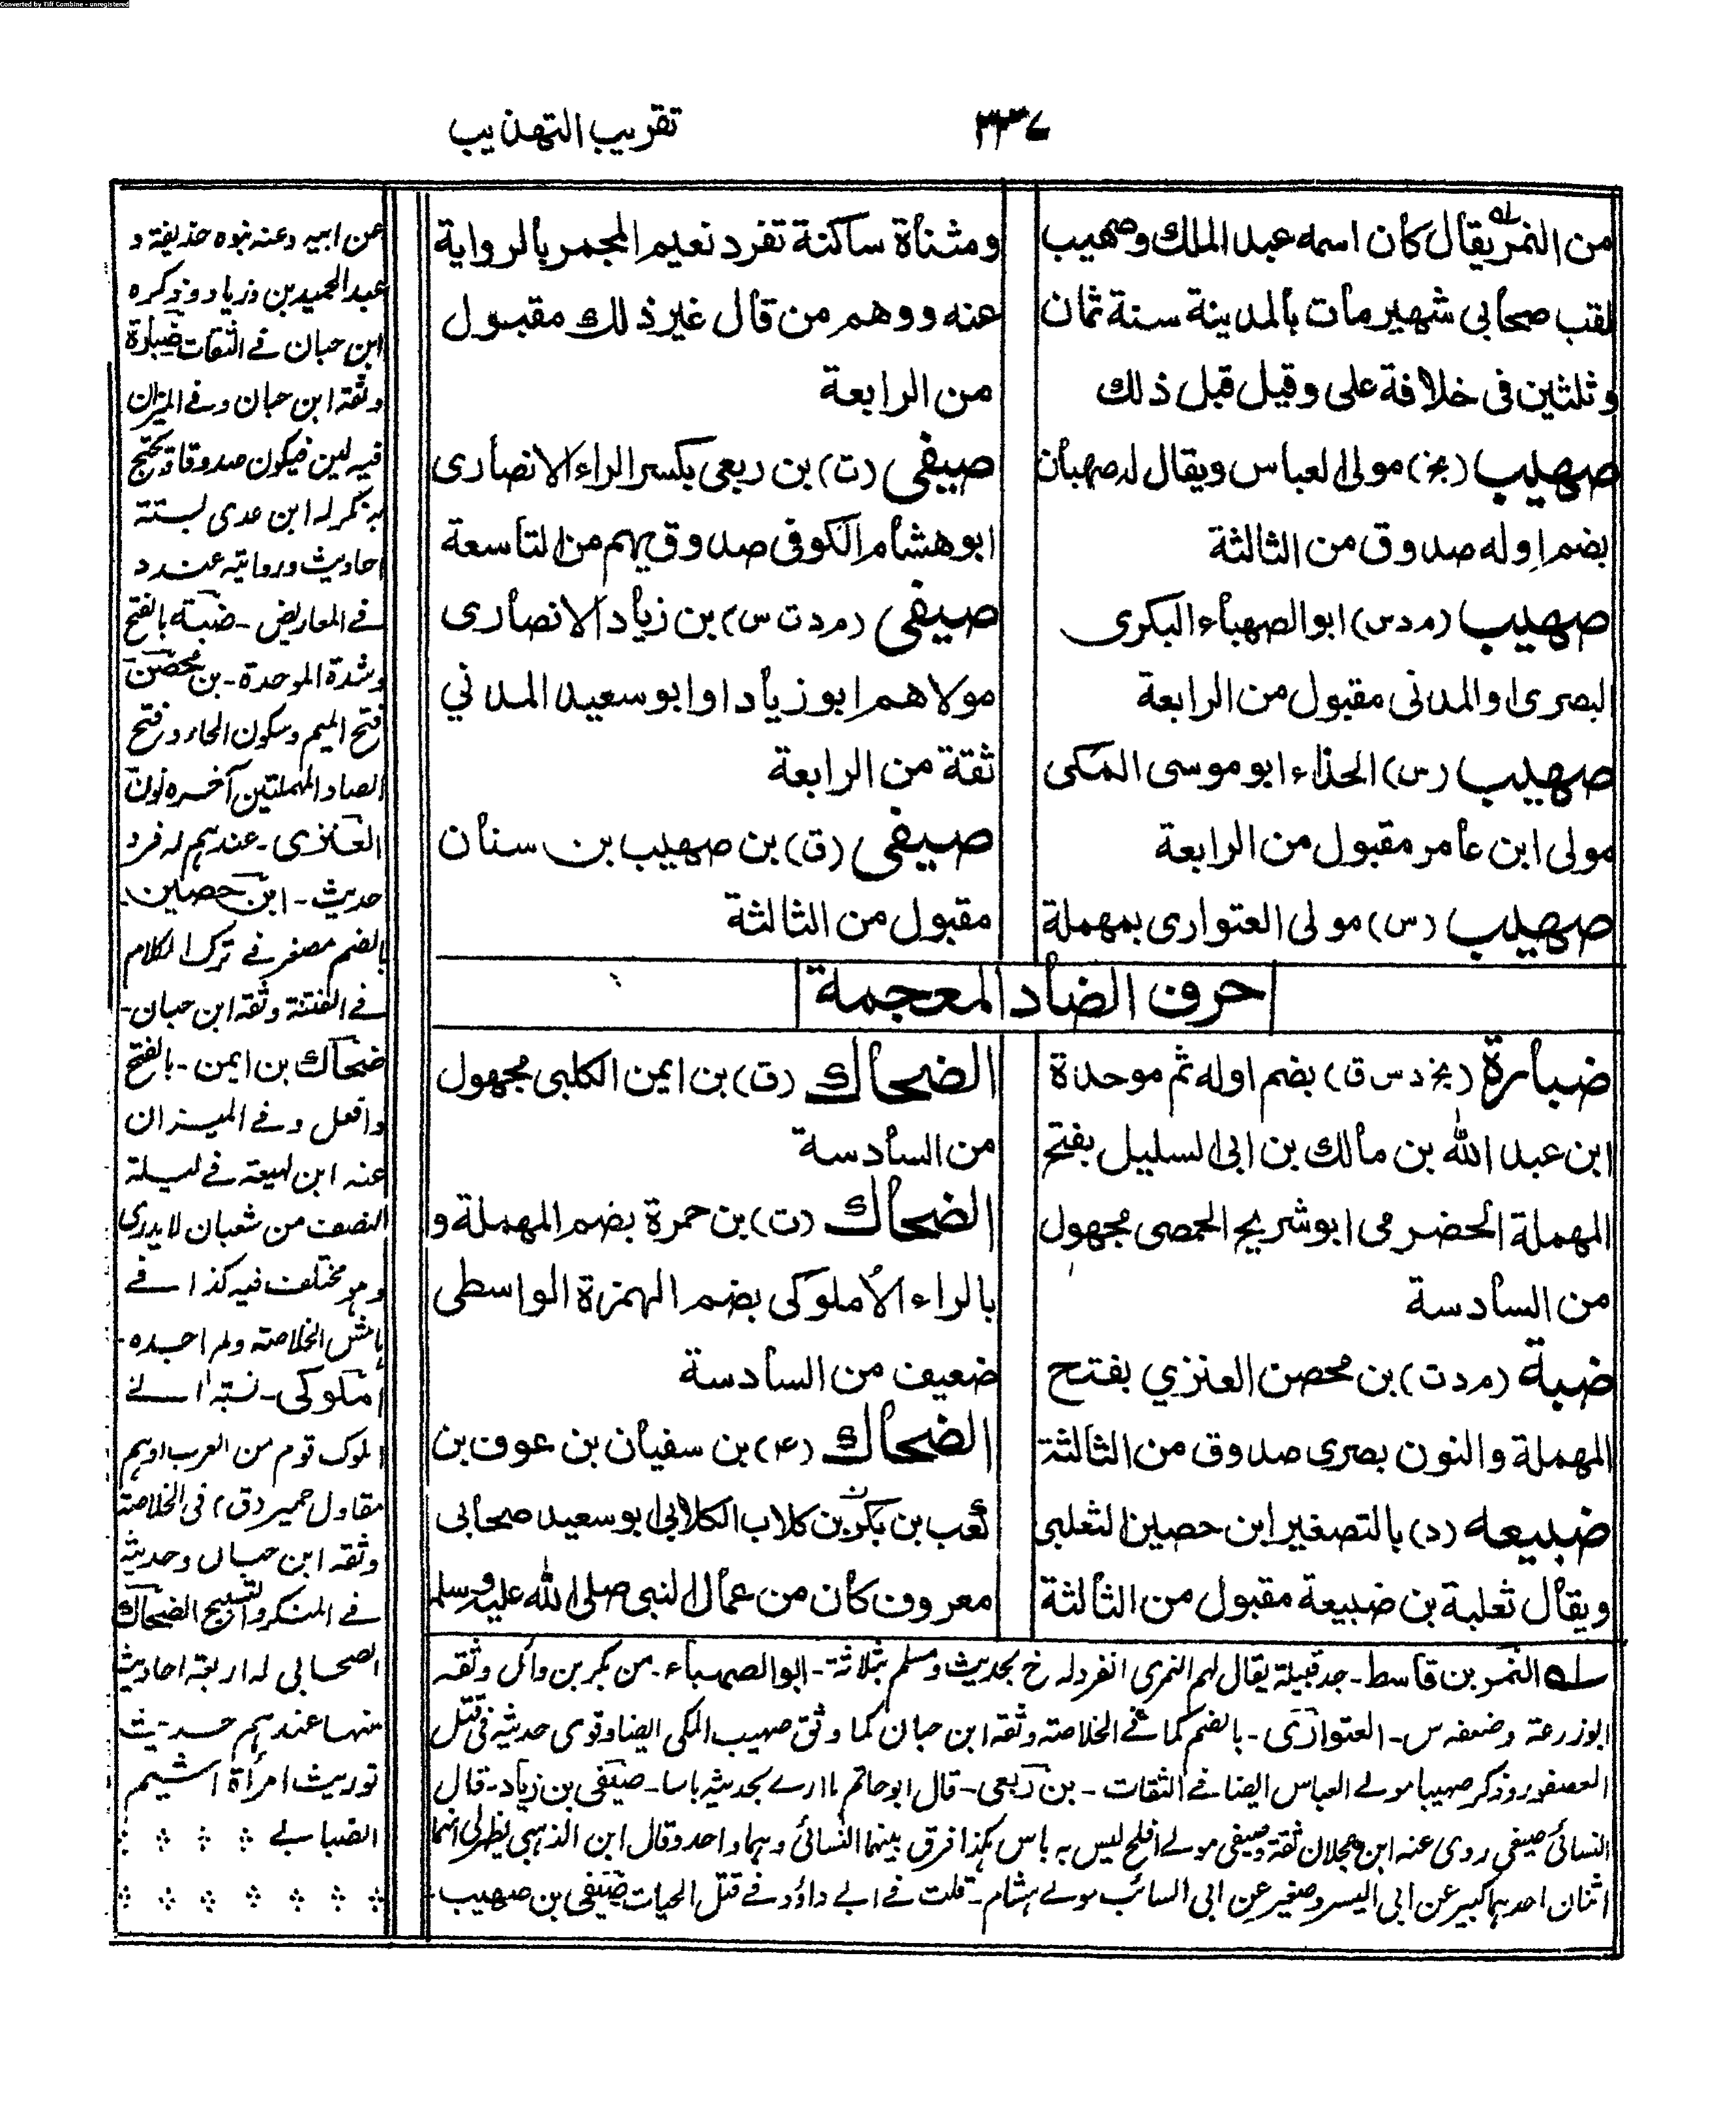 Converted by Tiff Combine - unregistered
٢٣٧
تقريب التهذيب
من النمر يقال كان اسمه عبد الملك وصهيب
لقب صحابي شهير مات بالمدينة سنة ثمان
وثلثين في خلافة على وقيل قبل ذلك
صهيب (بخ) مولى العباس ويقال له صهبان
بضم اوله صدوق من الثالثة
صهيب (م د س) ابو الصهباء البكرى
البصرى او المدنى مقبول من الرابعة
صهيب (س) الحذاء ابو موسى المكى
مولى ابن عامر مقبول من الرابعة
صهيب (س) مولى العتوارى بمهملة
ومثناة ساكنة تفرد نعيم المجمر بالرواية
عنه ووهم من قال غير ذلك مقبول
من الرابعة
صيفى (ت) بن ربعى بكسر الراء الانصارى
ابو هشام الكوفى صدوق يهم من التاسعة
صيفى (م د ت س) بن زياد الانصارى
مولاهم ابو زياد او ابو سعيد المدني
ثقة من الرابعة
صيفى (ق) بن صهيب بن سنان
مقبول من الثالثة
حرف الضاد المعجمة
ضبارة (بخ د س ق) بضم اوله ثم موحدة
ابن عبد الله بن مالك بن ابى السليل بفتح
المهملة الحضرمى ابو شريح الحمصى مجهول
من السادسة
ضبة (م د ت) بن محصن العنزي بفتح
المهملة والنون بصرى صدوق من الثالثة
ضبيعه (د) بالتصغير ابن حصين الثعلبى
ويقال ثعلبة بن ضبيعة مقبول من الثالثة
الضحاك (ق) بن ايمن الكلبى مجهول
من السادسة
الضحاك (ت) بن حمرة بضم المهملة و
بالراء الاملوكى بضم الهمزة الواسطى
ضعيف من السادسة
الضحاك (٤) بن سفيان بن عوف بن
كعب بن بكر بن كلاب الكلابى ابو سعيد صحابى
معروف كان من عمال النبى صلى الله عليه وسلم
له النمر بن قاسط - جد قبيلة يقال لهم النمرى انفرد له خ بحديث ومسلم بثلاثة - ابو الصهباء - من بكر بن وائل وثقه
ابو زرعة وضعفه س - العتوارى - بالضم كما في الخلاصة وثقه ابن حبان كما وثق صهيب المكى ايضا وقوى حديثه فى قتل
العصفور وذكر صهيبا مولى العباس ايضا في الثقات - بن ربعى - قال ابو حاتم ما ارى بحديثه باسا - صيفى بن زياد - قال
النسائى صيفى روى عنه ابن عجلان ثقة وصيفى مولى افلح ليس به باس هكذا فرق بينهما النسائى وهما واحد وقال ابن الذهبى يظهر لى انهما
اثنان احدهما كبير عن ابى اليسر وصغير عن ابى السائب مولى هشام - قلت في ابى داؤد في قتل الحيات صيفى بن صهيب -
عن ابيه وعنه بنوه حذيفة و
عبد الحميد بن زياد وذكره
ابن حبان في الثقات ضبارة
وثقه ابن حبان وفي الميزان
فيه لين فيكون صدوقا
ابن عدى لستة
احاديث وروايته عند د
في المعاريض - ضبة بالفتح
وشدة الموحدة - بن محصن
فتح الميم وسكون الحاء وفتح
الصاد المهملتين آخره نون
العنزى - عندهم له فرد
حديث - ابن حصين
بالضم مصغر في ترك الكلام
في الفتنة وثقه ابن حبان -
ضحاك بن ايمن - بالفتح
وافعل وفي الميزان
عنه ابن لهيعة في ليلة
النصف من شعبان لا يدرى
وهو مختلف فيه كذا في
هامش الخلاصة ولم اجده -
املوكى - نسبة الى
املوك قوم من العرب اوهم
مقاول حمير (ق) فى الخلاصة
وثقه ابن حبان وحديثه
في المنكر والتسبيح الضحاك
الصحابى له اربعة احاديث
منها عندهم حديث
توريث امرأة اشيم
الضبابى